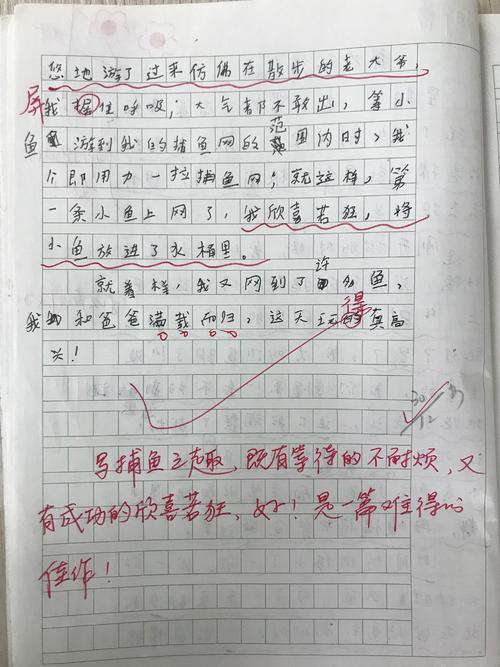 悠地游了过来仿佛在散步的老大爷，
屏
我握住呼吸；大气都不敢出，等小
鱼游到我的捕鱼网的范围内时，我
个即用力一拉捕鱼网；就这样，第
一条小鱼上网了，我欣喜若狂，将
小鱼放进了水桶里。
就着样，我又网到了许多鱼，
我和爸爸满载而归，这天玩的真高
得
兴！
写捕鱼之趣，既有等待的不耐烦，又
有成功的欣喜若狂，好！是一篇难得的
佳作！